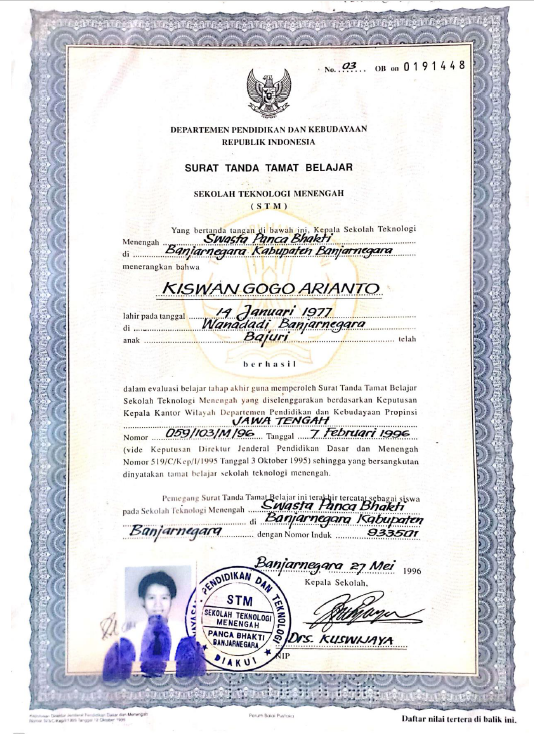 No. 03 OB on 0191448
DEPARTEMEN PENDIDIKAN DAN KEBUDAYAAN
REPUBLIK INDONESIA
SURAT TANDA TAMAT BELAJAR
SEKOLAH TEKNOLOGI MENENGAH
( S T M )
Yang bertanda tangan di bawah ini, Kepala Sekolah Teknologi
Menengah Swasta Panca Bhakti
di Banjarnegara Kabupaten Banjarnegara
menerangkan bahwa
KISWAN GOGO ARIANTO
lahir pada tanggal 14 Januari 1977
di Wanadadi Banjarnegara
anak Bajuri telah
berhasil
dalam evaluasi belajar tahap akhir guna memperoleh Surat Tanda Tamat Belajar
Sekolah Teknologi Menengah yang diselenggarakan berdasarkan Keputusan
Kepala Kantor Wilayah Departemen Pendidikan dan Kebudayaan Propinsi
JAWA TENGAH
Nomor 059/103/M/96 Tanggal 7 Februari 1996
(vide Keputusan Direktur Jenderal Pendidikan Dasar dan Menengah
Nomor 519/C/Kep/I/1995 Tanggal 3 Oktober 1995) sehingga yang bersangkutan
dinyatakan tamat belajar sekolah teknologi menengah.
Pemegang Surat Tanda Tamat Belajar ini terakhir tercatat sebagai siswa
pada Sekolah Teknologi Menengah Swasta Panca Bhakti
di Banjarnegara Kabupaten
Banjarnegara dengan Nomor Induk 933501
Banjarnegara 27 Mei 1996
Kepala Sekolah,
PENDIDIKAN DAN TEKNOLOGI
STM
SEKOLAH TEKNOLOGI
MENENGAH
PANCA BHAKTI
BANJARNEGARA
DIAKUI
Drs. KUSWIJAYA
NIP
Daftar nilai tertera di balik ini.